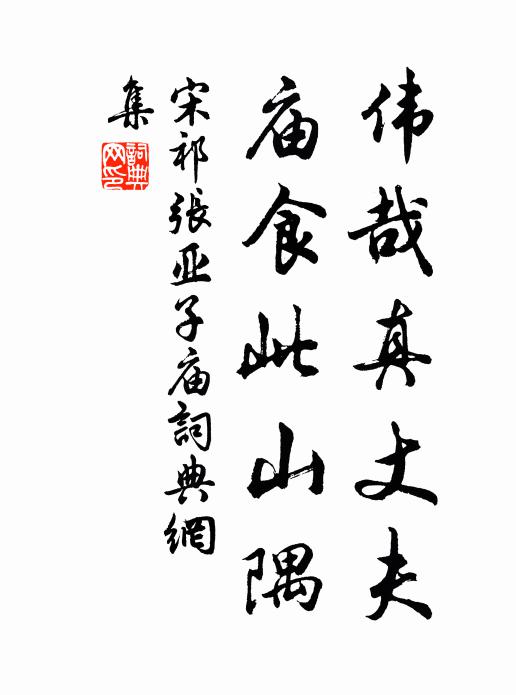 伟哉真丈夫
庙食此山隅
宋祁張亚子庙詞典網
集
詞典
网印